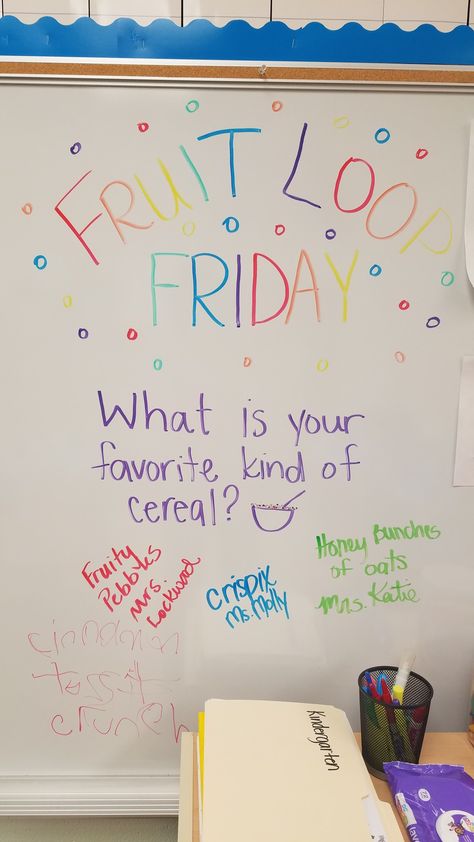 FRUIT LOOP
FRIDAY
What is your
favorite kind of
cereal?
Honey Bunches
of oats
Mrs. Katie
Fruity
Pebbles
Mrs.
Lockward
Crispix
Ms. Molly
cinnamon
crunch
Kindergarten